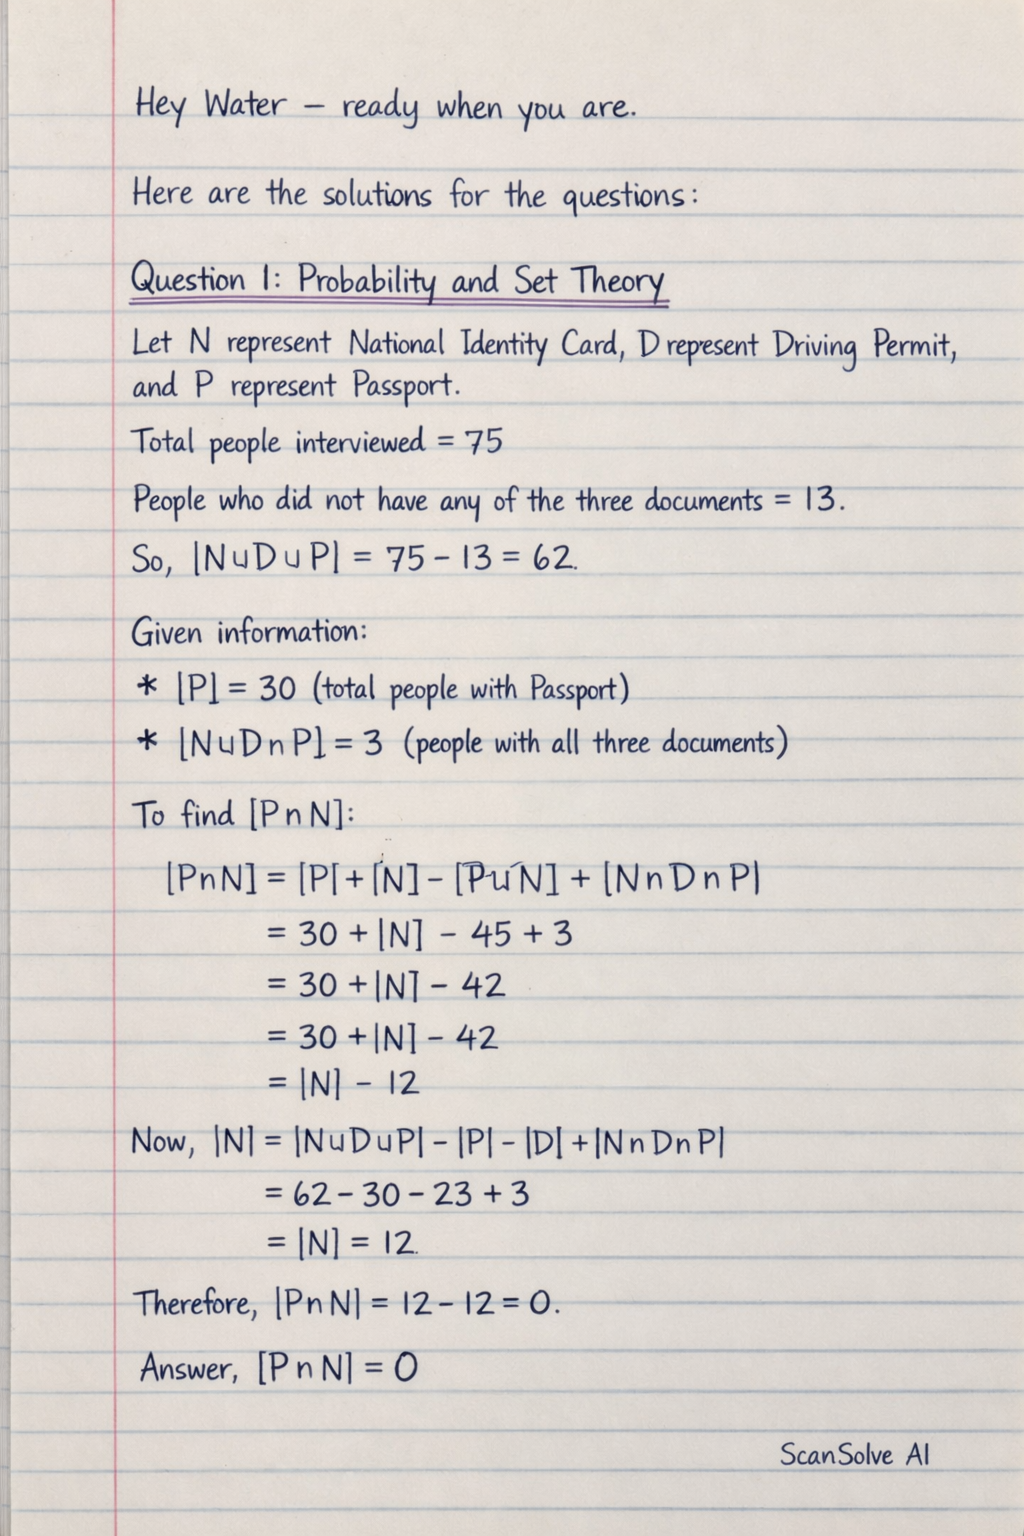 Hey Water – ready when you are.
Here are the solutions for the questions:
Question 1: Probability and Set Theory
Let N represent National Identity Card, D represent Driving Permit,
and P represent Passport.
Total people interviewed = 75
People who did not have any of the three documents = 13.
So, |N∪D∪P| = 75 – 13 = 62.
Given information:
* |P| = 30 (total people with Passport)
* |N∪D∩P| = 3 (people with all three documents)
To find [P∩N]:
[P∩N] = [P] + [N] – [P∪N] + [N∩D∩P|
= 30 + |N] – 45 + 3
= 30 + |N] – 42
= 30 + |N] – 42
= |N] – 12
Now, |N| = |N∪D∪P| – |P| – |D| + |N∩D∩P|
= 62 – 30 – 23 + 3
= |N] = 12.
Therefore, |P∩N| = 12 – 12 = 0.
Answer, [P∩N] = 0
ScanSolve AI